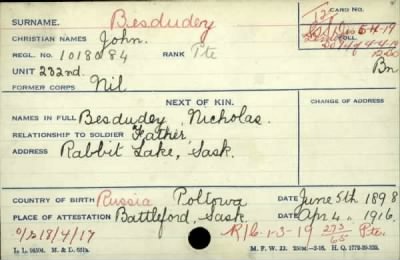 SURNAME. Biesdudey
CARD NO.
CHRISTIAN NAMES John.
REGL. NO. 1018084 RANK Pte
UNIT 232nd. Bn
FORMER CORPS Nil
NEXT OF KIN.
CHANGE OF ADDRESS
NAMES IN FULL Besdudey, Nicholas.
RELATIONSHIP TO SOLDIER Father
ADDRESS Rabbit Lake, Sask.
COUNTRY OF BIRTH Russia Poltowa DATE June 5th 1898
PLACE OF ATTESTATION Battleford, Sask DATE Apr 4 " 1916.
18/4/17 R/C. 1-3-19 273/65 Pte.
L. L. 94604. M. & D. M. F. W. 22.